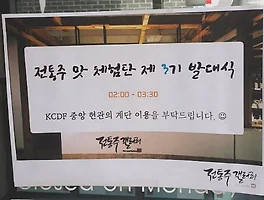 전통주 맛 체험단 제 3기 발대식
02:00 - 03:30
KCDF 중앙 현관의 계단 이용을 부탁드립니다. ☺
전통주갤러리
전통주갤러리
Closed on Monday